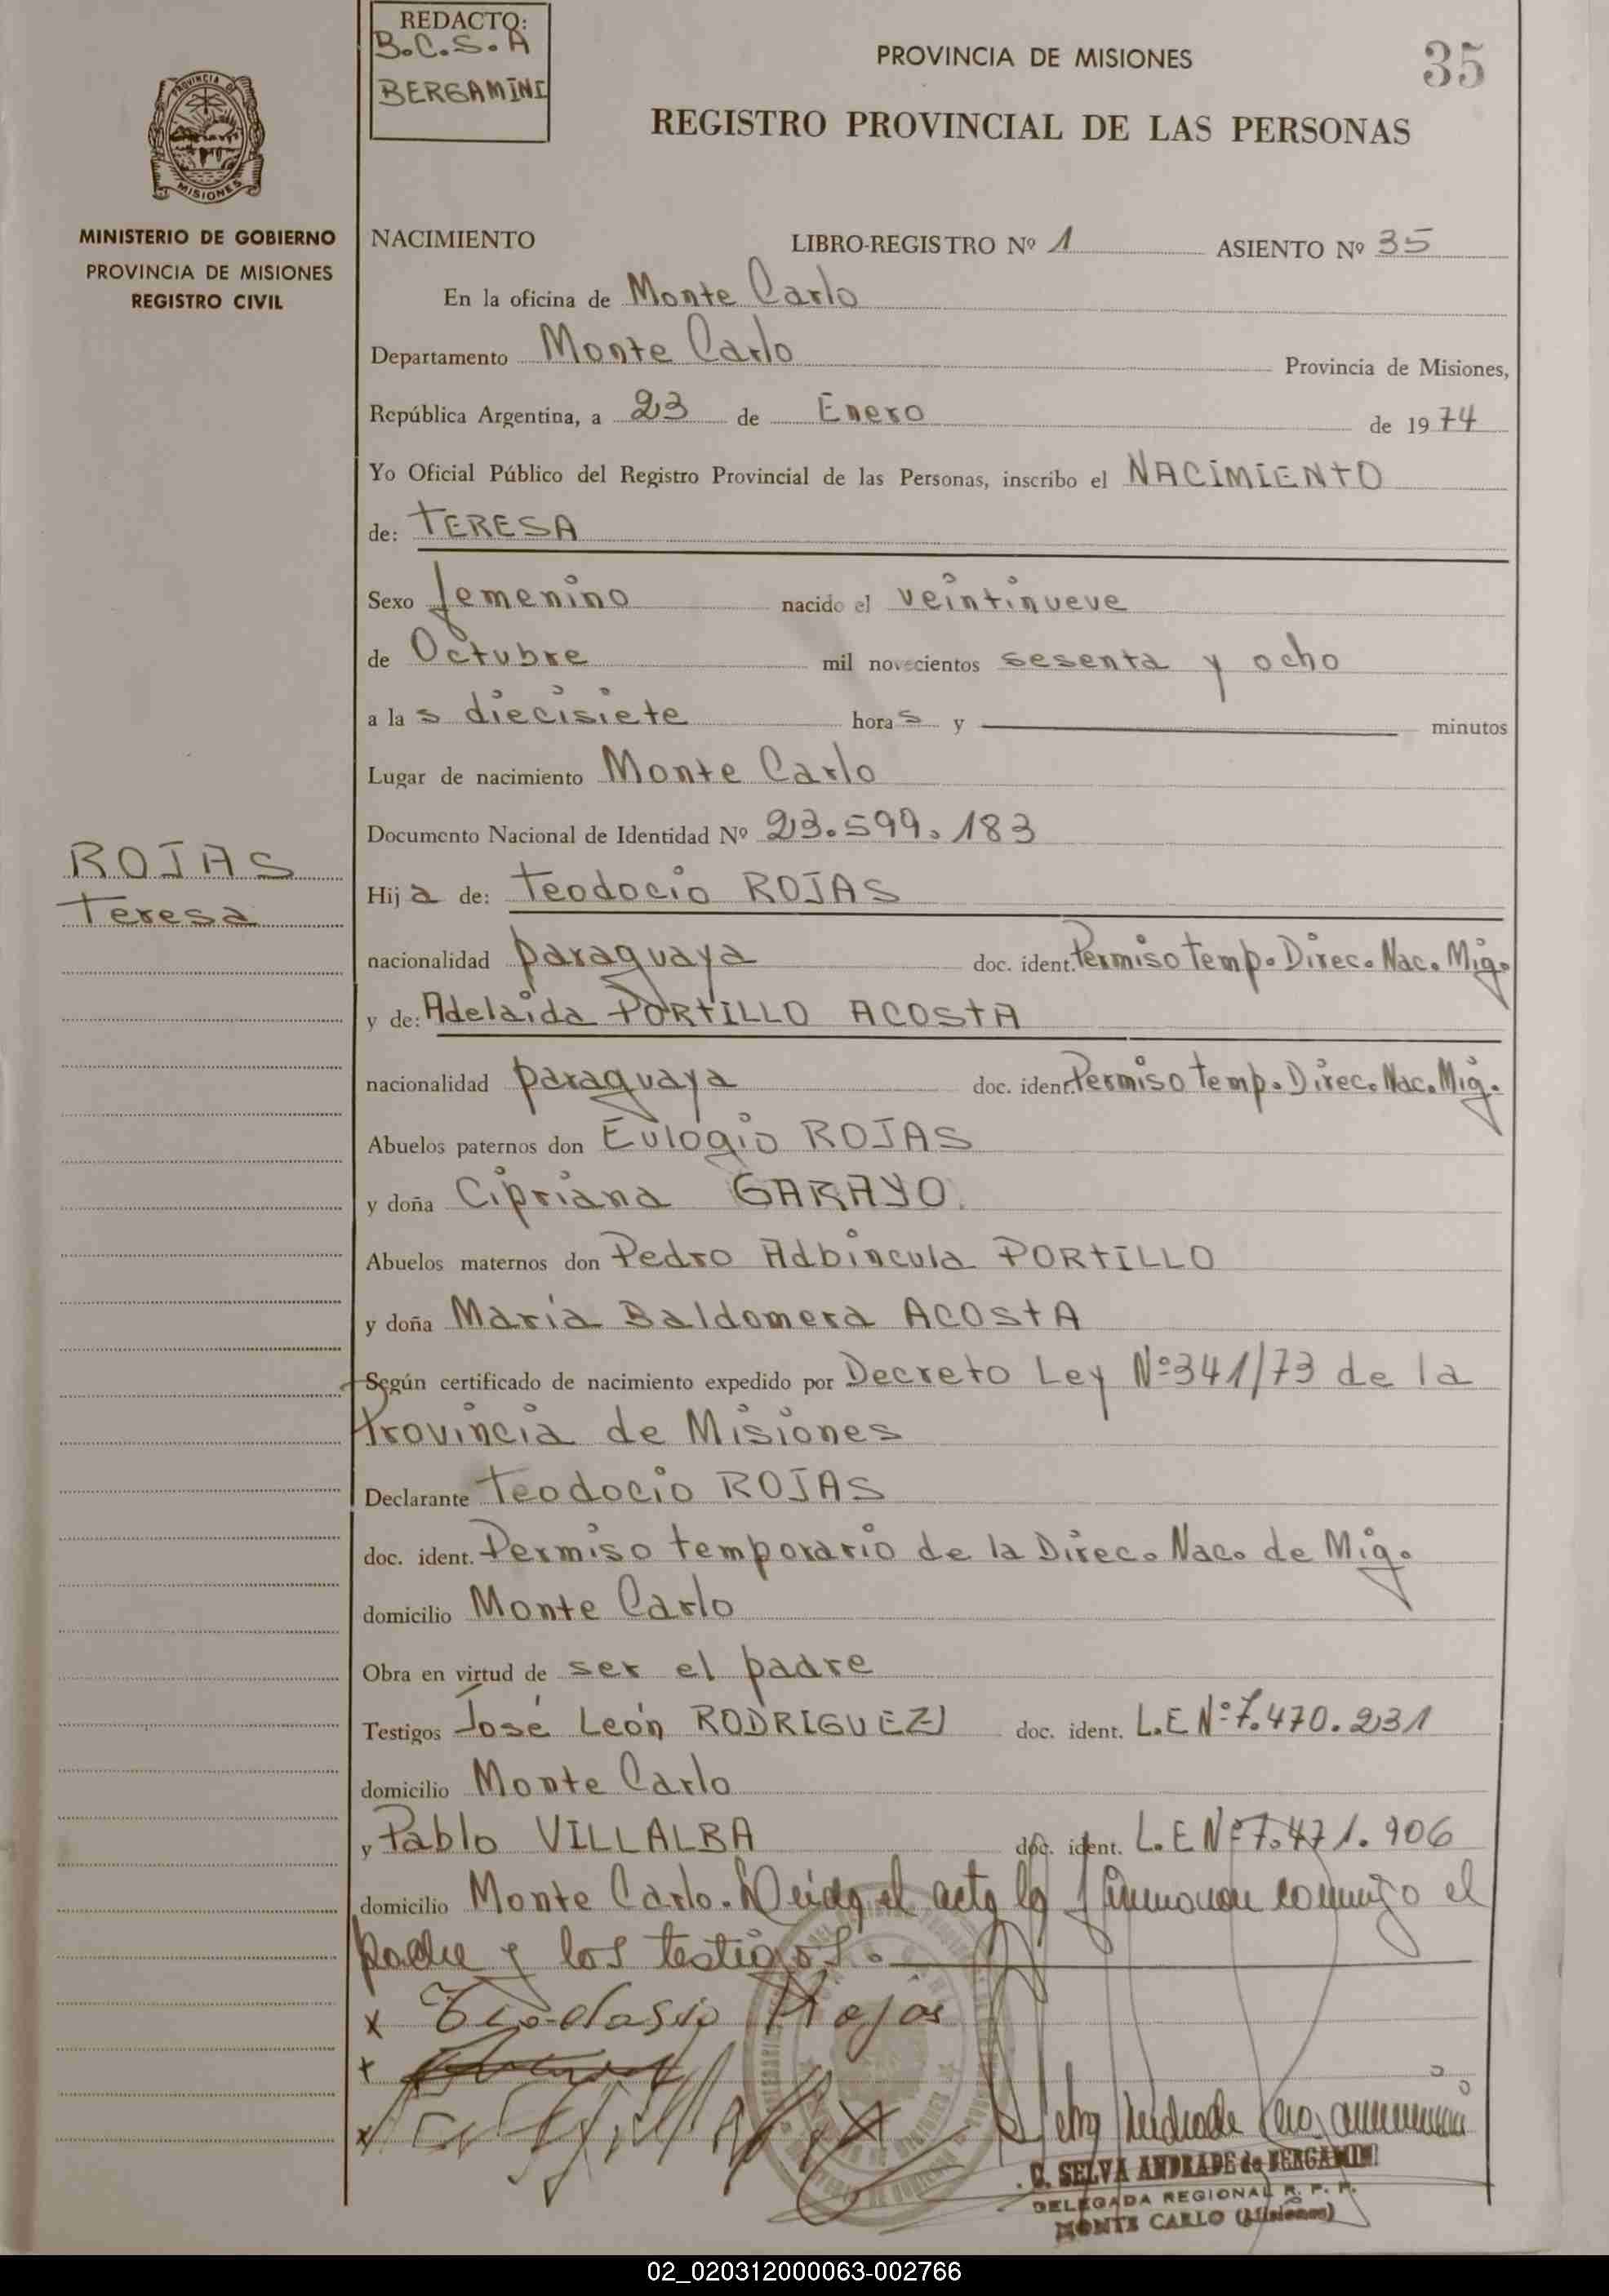 REDACTO:
B.C.S.A
BERGAMINI
PROVINCIA DE MISIONES
35
REGISTRO PROVINCIAL DE LAS PERSONAS
PROVINCIA DE
MISIONES
MINISTERIO DE GOBIERNO
PROVINCIA DE MISIONES
REGISTRO CIVIL
NACIMIENTO LIBRO-REGISTRO Nº 1 ASIENTO Nº 35
En la oficina de Monte Carlo
Departamento Monte Carlo Provincia de Misiones,
República Argentina, a 23 de Enero de 1974
Yo Oficial Público del Registro Provincial de las Personas, inscribo el NACIMIENTO
de: TERESA
Sexo femenino nacido el veintinueve
de Octubre mil novecientos sesenta y ocho
a las diecisiete horas y minutos
Lugar de nacimiento Monte Carlo
Documento Nacional de Identidad Nº 23.599.183
ROJAS
Teresa
Hija de: Teodocio ROJAS
nacionalidad paraguaya doc. ident. Permiso temp. Direc. Nac. Mig.
y de: Adelaida PORTILLO ACOSTA
nacionalidad paraguaya doc. ident. Permiso temp. Direc. Nac. Mig.
Abuelos paternos don Eulogio ROJAS
y doña Cipriana GARAYO.
Abuelos maternos don Pedro Adbincula PORTILLO
y doña María Baldomera ACOSTA
Según certificado de nacimiento expedido por Decreto Ley Nº 341/73 de la
Provincia de Misiones
Declarante Teodocio ROJAS
doc. ident. Permiso temporario de la Direc. Nac. de Mig.
domicilio Monte Carlo
Obra en virtud de ser el padre
Testigos José León RODRIGUEZ doc. ident. L.E Nº 7.470.231
domicilio Monte Carlo
y Pablo VILLALBA doc. ident. L.E Nº 7.471.906
domicilio Monte Carlo. Leida el acta la firmaron conmigo el
padre y los testigos.
x Teodosio Rojas
x
x
C. SELVA ANDRADE de BERGAMINI
DELEGADA REGIONAL R. P. P.
MONTE CARLO (Misiones)
02_020312000063-002766